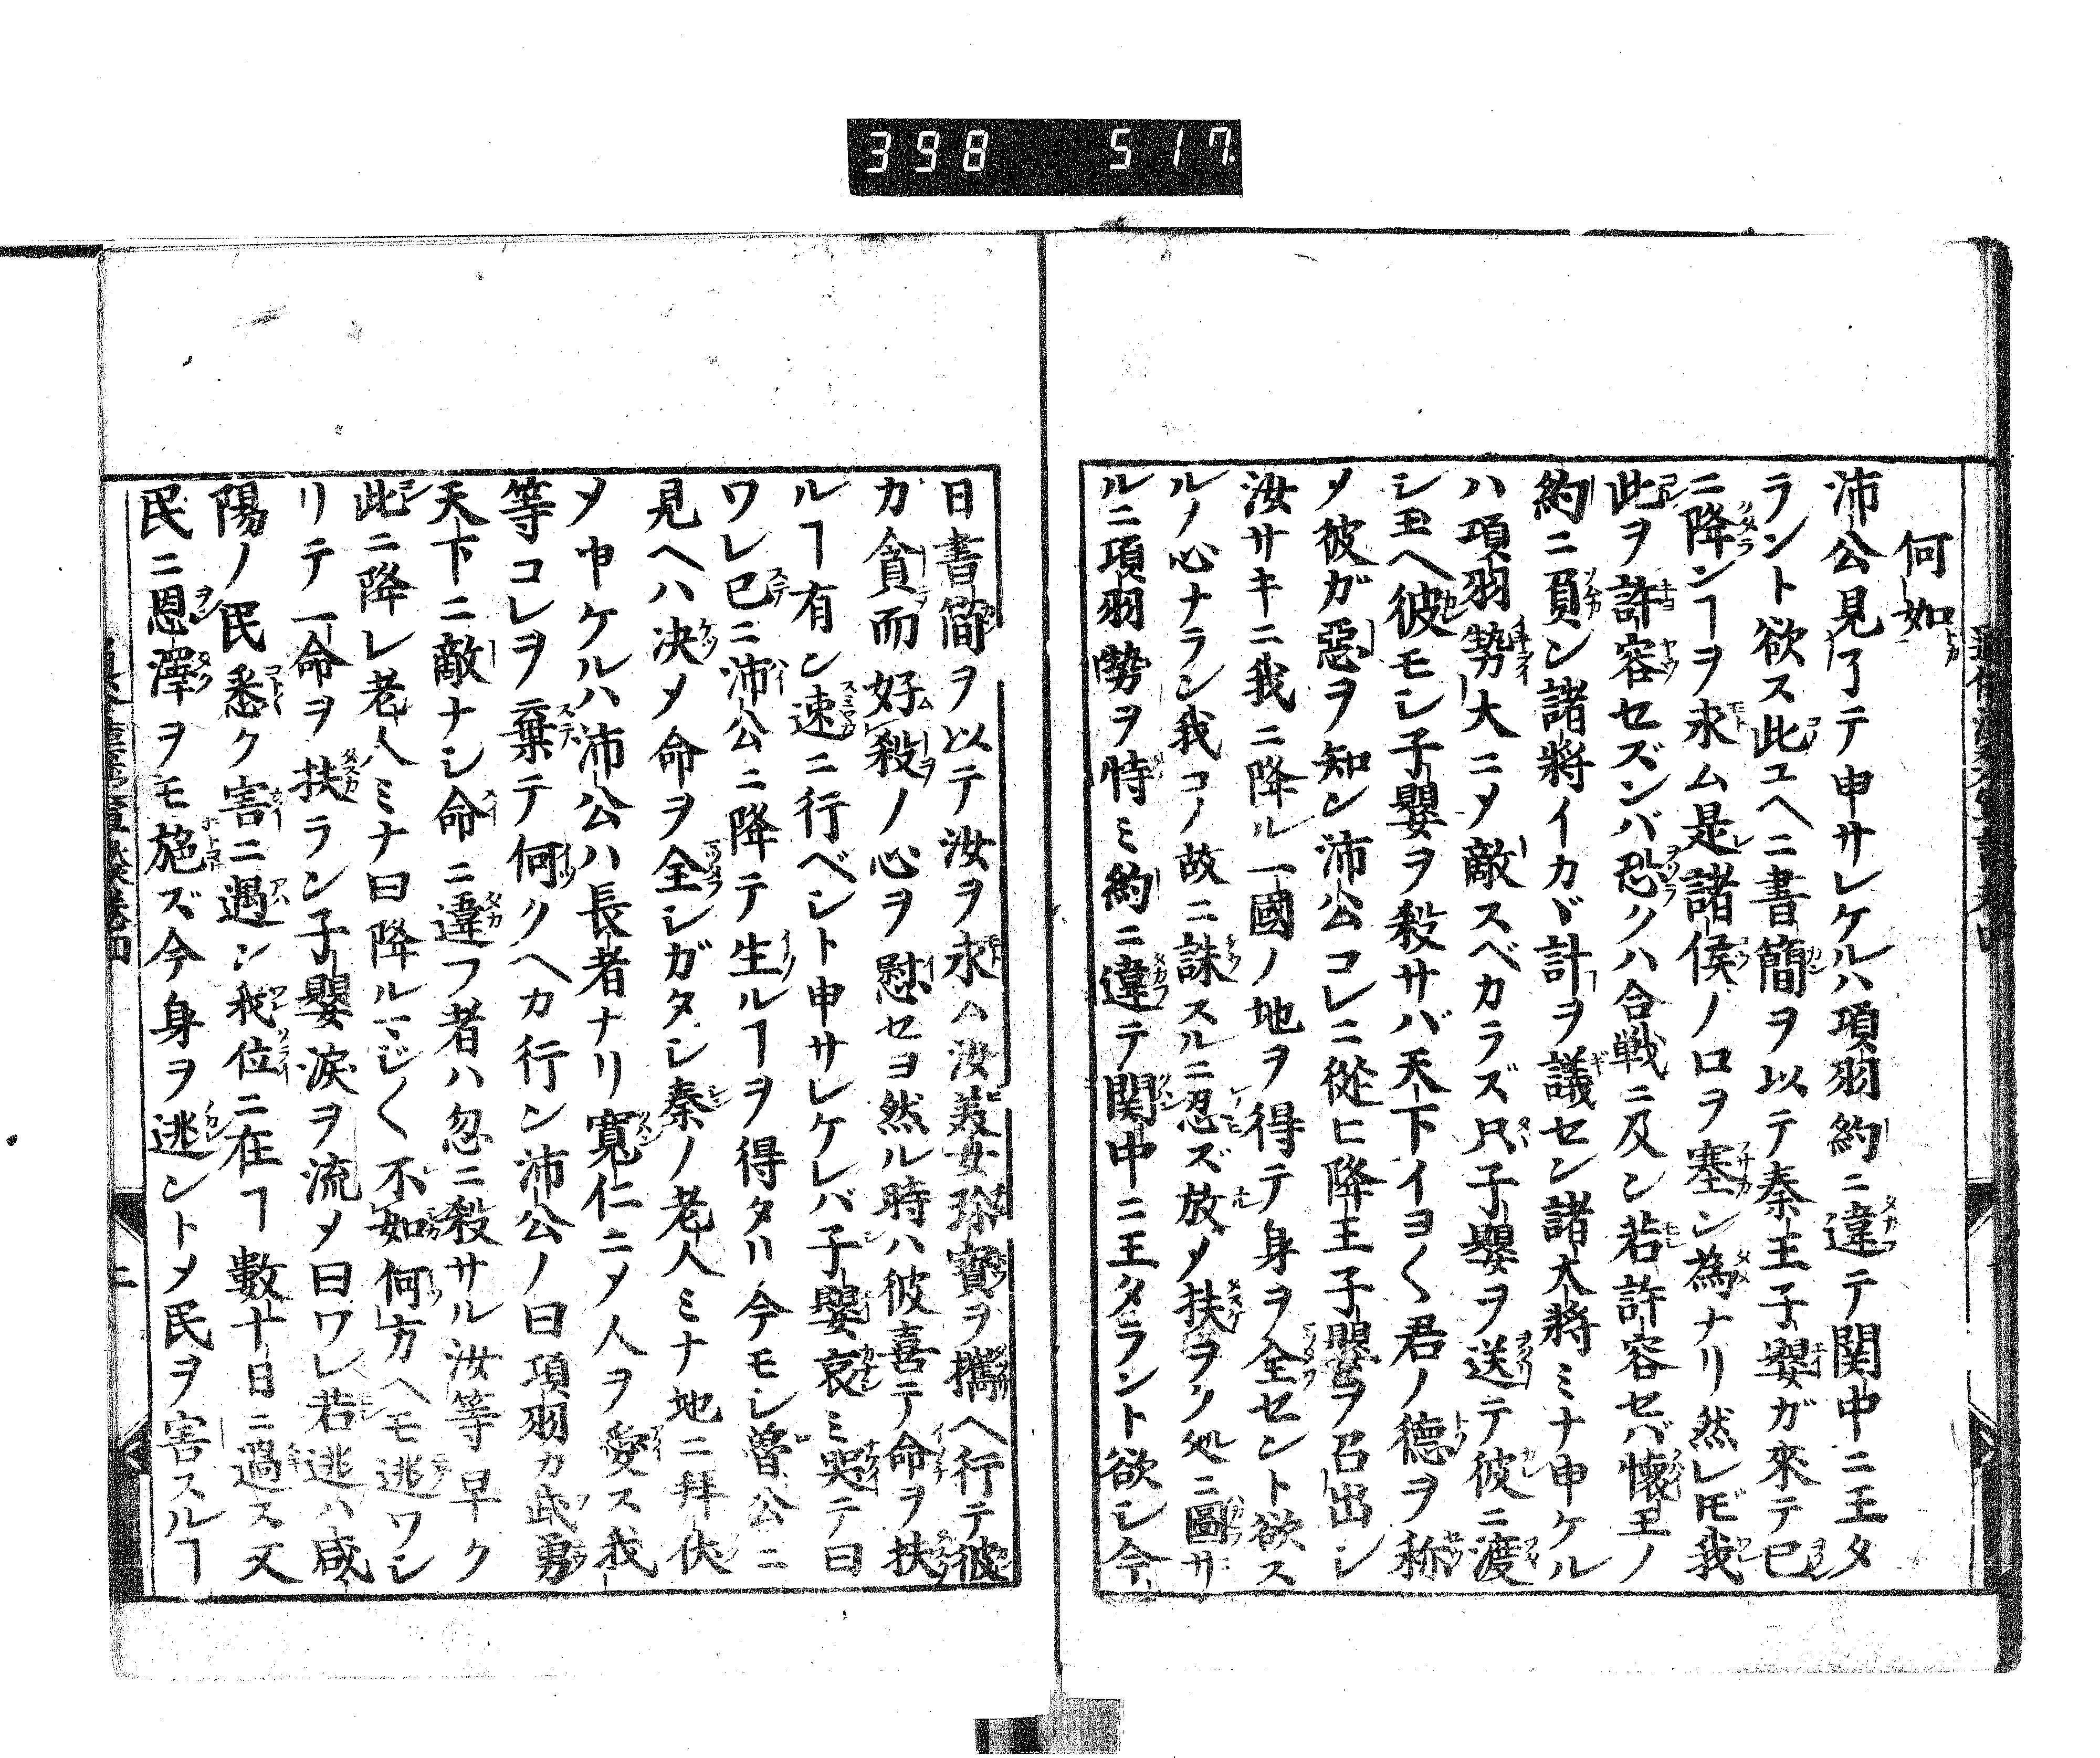 398 517
何如
沛公見了テ申サレケルハ項羽約ニ違テ関中ニ王タ
ラント欲ス此ユヘニ書簡ヲ以テ秦王子嬰ガ來テ已
ニ降ンヿヲ求ム是諸侯ノ口ヲ塞ン為ナリ然レドモ我
此ヲ許容セズンバ恐クハ合戦ニ及ン若許容セバ懐王ノ
約ニ負ン諸將イカヾ計ヲ議セン諸大將ミナ申ケル
ハ項羽勢大ニメ敵スベカラズ只子嬰ヲ送テ彼ニ渡
シ玉ヘ彼モシ子嬰ヲ殺サバ天下イヨ〱君ノ德ヲ称
メ彼ガ惡ヲ知ン沛公コレニ從ヒ降王子嬰ヲ召出シ
汝サキニ我ニ降ル一國ノ地ヲ得テ身ヲ全セント欲ス
ルノ心ナラン我コノ故ニ誅スルニ忍ズ放メ扶ヲク処ニ圖サ
ルニ項羽勢ヲ時ミ約ニ違テ関中ニ王タラント欲シ今
日書簡ヲ以テ汝ヲ求ム汝美女珍寳ヲ携ヘ行テ彼
カ貪而好殺ノ心ヲ慰セヨ然ル時ハ彼喜テ命ヲ扶
ルヿ有ン速ニ行ベシト申サレケレバ子嬰哀ミ哭テ曰
ワレ已ニ沛公ニ降テ生ルヿヲ得タリ今モシ魯公ニ
見ヘハ决メ命ヲ全シガタシ秦ノ老人ミナ地ニ拜伏
メ申ケルハ沛公ハ長者ナリ寛仁ニメ人ヲ愛ス我
等コレヲ棄テ何クヘカ行ン沛公ノ曰項羽カ武勇
天下ニ敵ナシ命ニ違フ者ハ忽ニ殺サル汝等早ク
此ニ降レ老人ミナ曰降ルマジ〱不如何方ヘモ逃ワシ
リテ一命ヲ扶ラン子嬰涙ヲ流メ曰ワレ若逃ハ咸
陽ノ民悉ク害ニ遇ン我位ニ在ヿ數十日ニ過ス又
民ニ恩澤ヲモ施ズ今身ヲ逃ントメ民ヲ害スルヿ